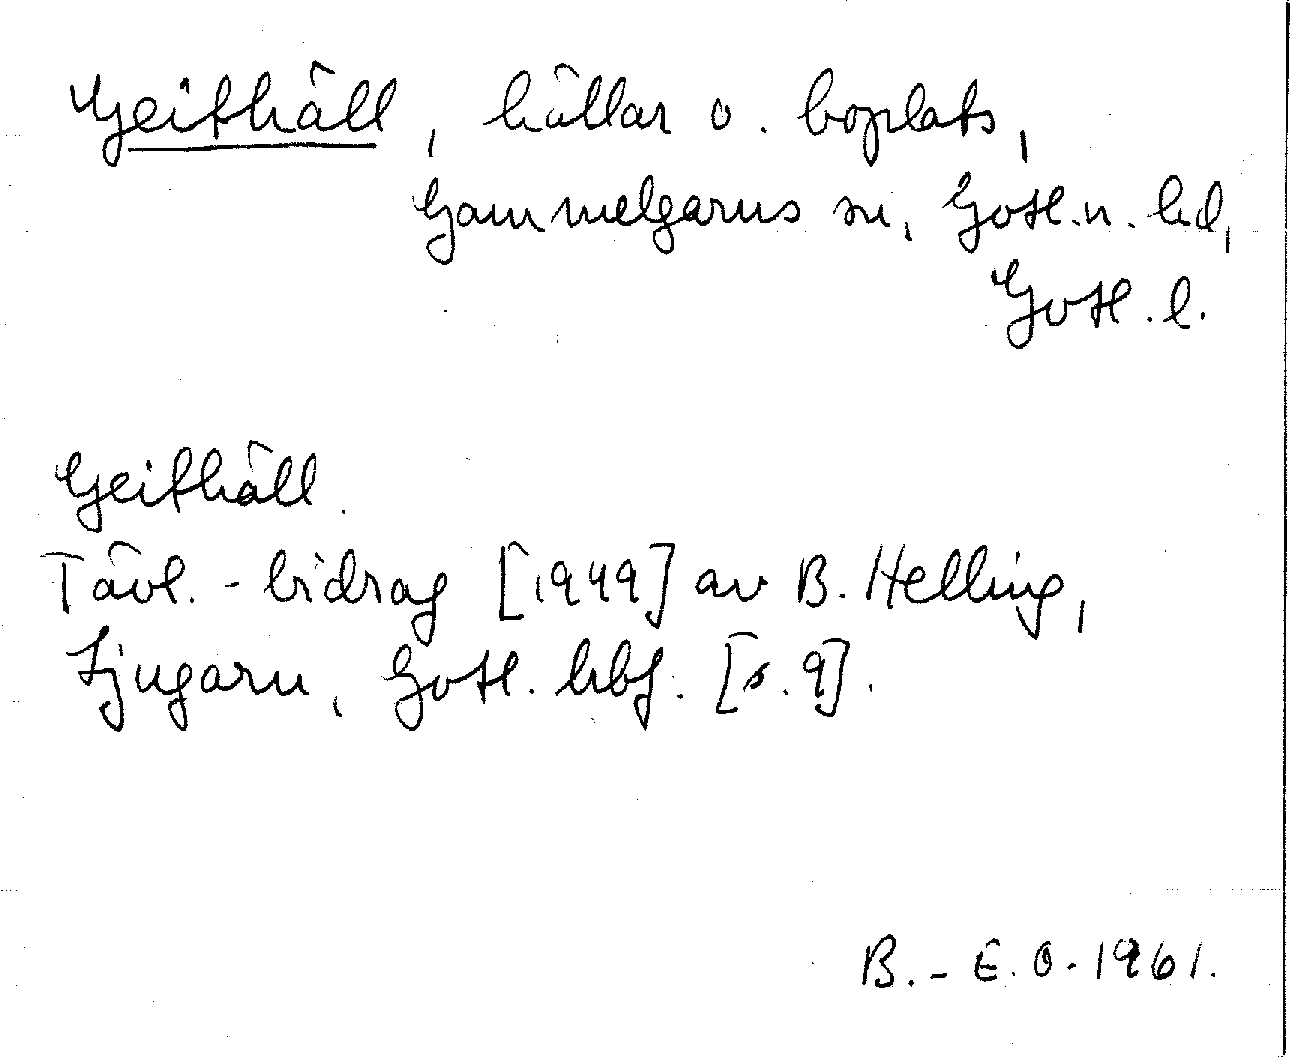 Geithäll, hällar o. boplats,
Gammelgarns sn, Gotl.n. hd,
Gotl. l.
Geithäll.
Tävl.-bidrag [1949] av B. Helling,
Ljugarn, Gotl. hbf. [s. 9].
B.-E.O. 1961.